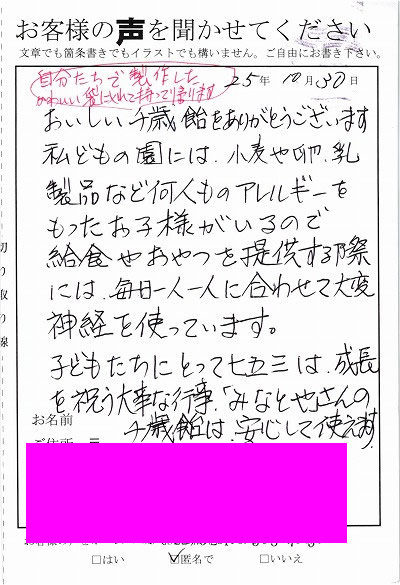 お客様の声を聞かせてください
文章でも箇条書きでもイラストでも構いません。ご自由にお書き下さい。
自分たちで製作した
かわいい袋に入れて持って帰ります
25年10月30日
おいしい千歳飴をありがとうございます
私どもの園には、小麦や卵、乳
製品など何人ものアレルギーを
もったお子様がいるので
給食やおやつを提供する際
には、毎日一人一人に合わせて大変
神経を使っています。
子どもたちにとって七五三は、成長
を祝う大事な行事、「みなとや」さんの
千歳飴は、安心して使えます
お名前
ご住所 〒
切り取り線
□はい ☑匿名で □いいえ